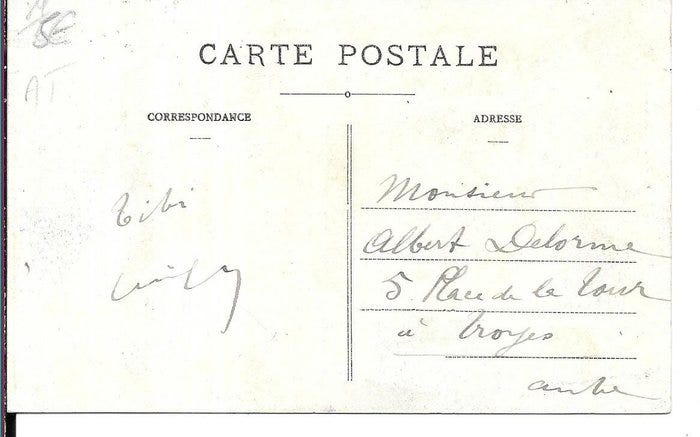 5€
AT
CARTE POSTALE
CORRESPONDANCE
ADRESSE
bibi
Monsieur
Albert Delorme
5 Place de la Tour
à Troyes
aube